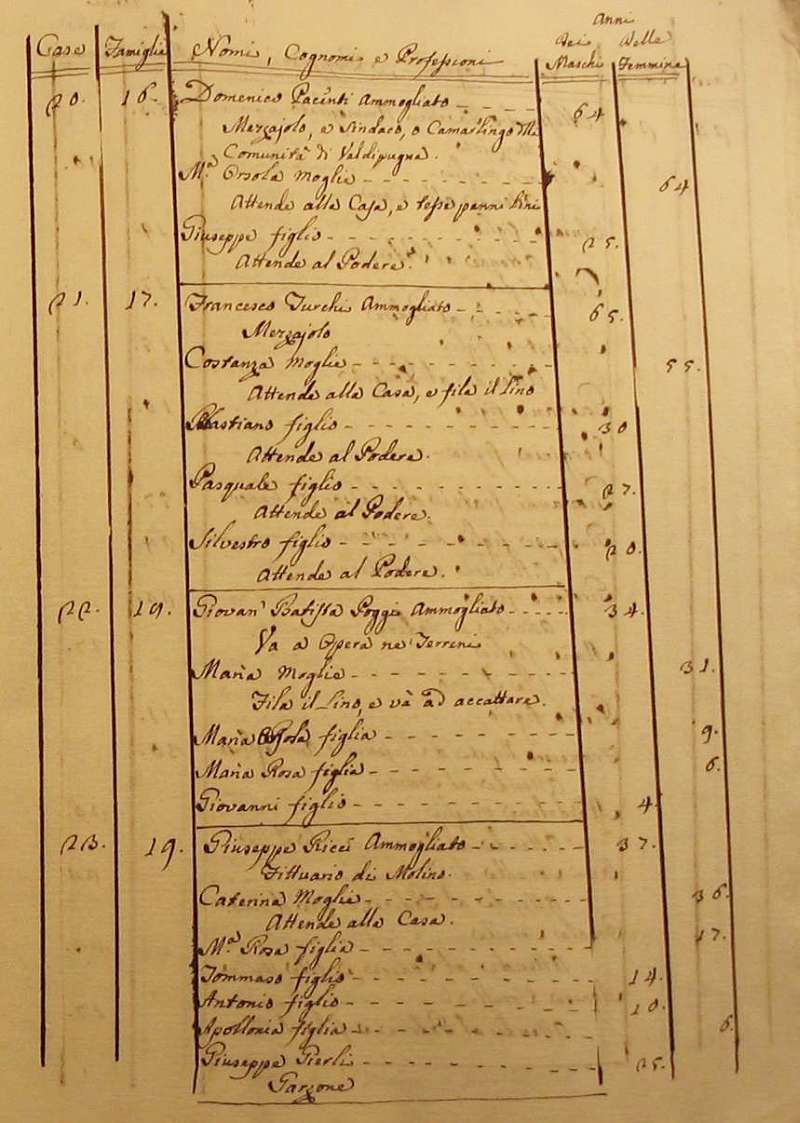 Anni
Case Famiglie Nomi, Cognomi, e Professioni dei Maschi delle Femmine
20. 16. Domenico Pacinti Ammogliato 64
Mezzajolo, e Sindaco, o Camarlingo
Comunità di Valdipugna.
M.ª Orsola Moglie 64
Attende alla Casa, e tesse panni lini
Giuseppe figlio 25.
Attende al Podere.
21. 17. Francesco Turchi Ammogliato 65.
Mezzajolo
Costanza Moglie 55.
Attende alla Casa, e fila il Lino
Bastiano figlio 30
Attende al Podere.
Pasquale figlio 27.
Attende al Podere.
Silvestro figlio 20.
Attende al Podere.
22. 19. Giovan' Batista Poggi Ammogliato 34.
Va a Opera ne' Terreni
Maria Moglie 31.
Fila il Lino, e và ad accattare.
Maria figlia 9.
Maria Rosa figlia 6.
Giovanni figlio 4.
23. 19. Giuseppe Ricci Ammogliato 37.
Fittuario di Molino.
Caterina Moglie 36.
Attende alla Casa.
M.ª Rosa figlia 17.
Tommaso figlio 14.
Antonio figlio 10.
Apollonia figlia 6.
Giuseppe Pierli 25.
Garzone